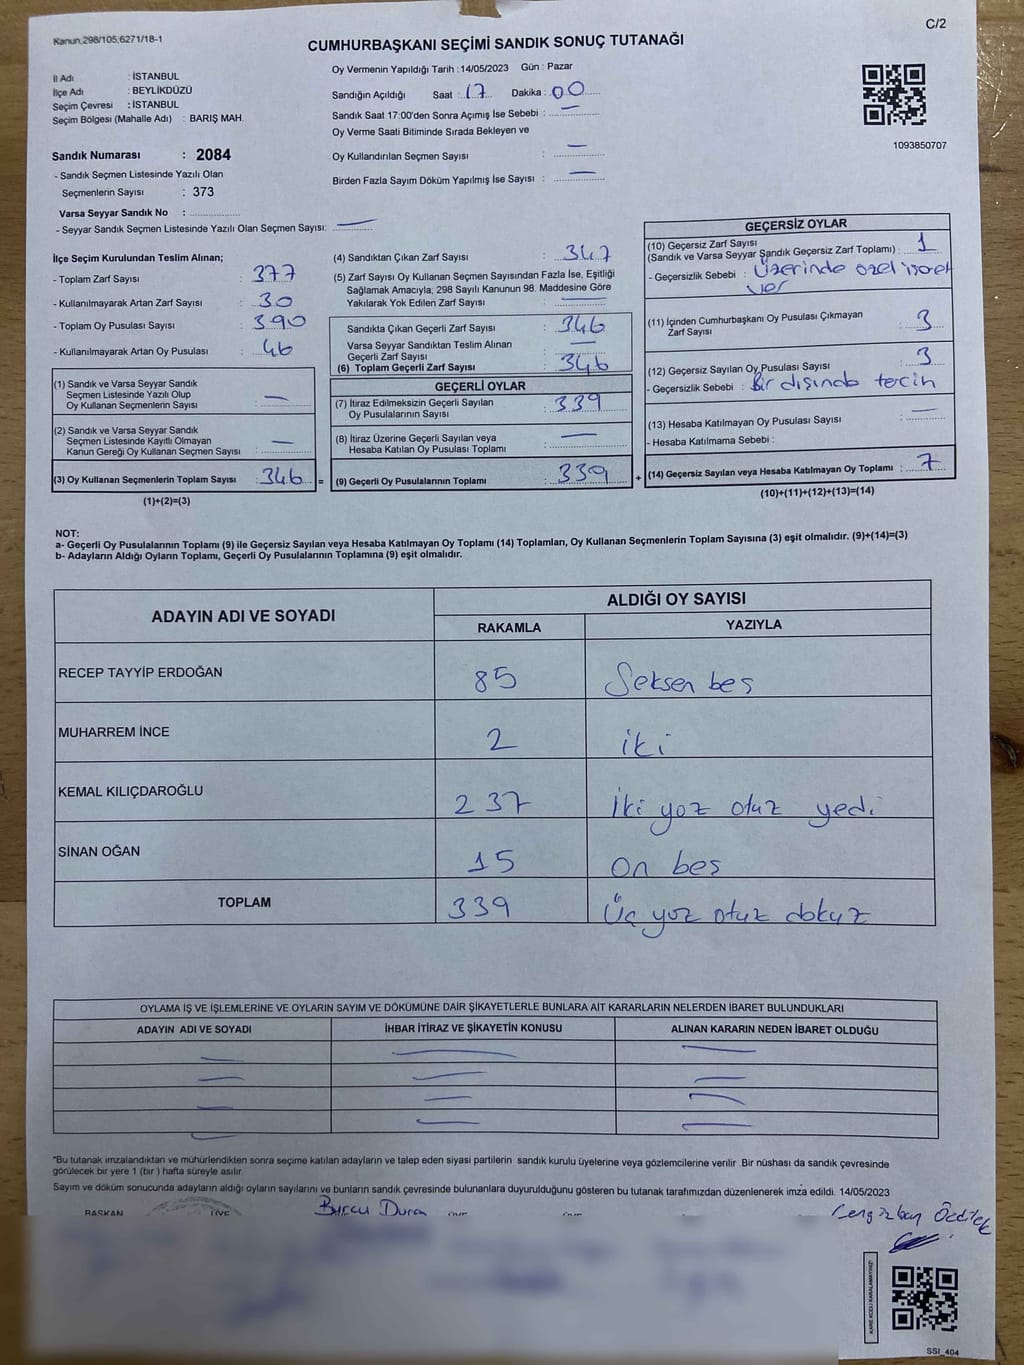 Kanun,298/105,6271/18-1
C/2
CUMHURBAŞKANI SEÇİMİ SANDIK SONUÇ TUTANAĞI
İl Adı : İSTANBUL
İlçe Adı : BEYLİKDÜZÜ
Seçim Çevresi : İSTANBUL
Seçim Bölgesi (Mahalle Adı) : BARIŞ MAH.
Oy Vermenin Yapıldığı Tarih :14/05/2023 Gün : Pazar
Sandığın Açıldığı Saat : 17 Dakika : 00
Sandık Saat 17:00'den Sonra Açımış İse Sebebi : —
Oy Verme Saati Bitiminde Sırada Bekleyen ve
Oy Kullandırılan Seçmen Sayısı : —
Birden Fazla Sayım Döküm Yapılmış İse Sayısı : —
1093850707
Sandık Numarası : 2084
- Sandık Seçmen Listesinde Yazılı Olan
Seçmenlerin Sayısı : 373
Varsa Seyyar Sandık No : ..................
- Seyyar Sandık Seçmen Listesinde Yazılı Olan Seçmen Sayısı: —
İlçe Seçim Kurulundan Teslim Alınan;
- Toplam Zarf Sayısı : 377
- Kullanılmayarak Artan Zarf Sayısı : 30
- Toplam Oy Pusulası Sayısı : 390
- Kullanılmayarak Artan Oy Pusulası : 46
(1) Sandık ve Varsa Seyyar Sandık
Seçmen Listesinde Yazılı Olup
Oy Kullanan Seçmenlerin Sayısı : —
(2) Sandık ve Varsa Seyyar Sandık
Seçmen Listesinde Kayıtlı Olmayan
Kanun Gereği Oy Kullanan Seçmen Sayısı : —
(3) Oy Kullanan Seçmenlerin Toplam Sayısı : 346 =
(1)+(2)=(3)
(4) Sandıktan Çıkan Zarf Sayısı : 347
(5) Zarf Sayısı Oy Kullanan Seçmen Sayısından Fazla İse, Eşitliği
Sağlamak Amacıyla; 298 Sayılı Kanunun 98. Maddesine Göre
Yakılarak Yok Edilen Zarf Sayısı : —
Sandıkta Çıkan Geçerli Zarf Sayısı : 346
Varsa Seyyar Sandıktan Teslim Alınan
Geçerli Zarf Sayısı : —
(6) Toplam Geçerli Zarf Sayısı : 346
GEÇERLİ OYLAR
(7) İtiraz Edilmeksizin Geçerli Sayılan
Oy Pusulalarının Sayısı : 339
(8) İtiraz Üzerine Geçerli Sayılan veya
Hesaba Katılan Oy Pusulası Toplamı : —
(9) Geçerli Oy Pusulalarının Toplamı : 339 +
GEÇERSİZ OYLAR
(10) Geçersiz Zarf Sayısı
(Sandık ve Varsa Seyyar Sandık Geçersiz Zarf Toplamı) : 1
- Geçersizlik Sebebi : Üzerinde özel işaret
var
(11) İçinden Cumhurbaşkanı Oy Pusulası Çıkmayan
Zarf Sayısı : 3
(12) Geçersiz Sayılan Oy Pusulası Sayısı : 3
- Geçersizlik Sebebi : Bir dışında tercih
(13) Hesaba Katılmayan Oy Pusulası Sayısı : —
- Hesaba Katılmama Sebebi :
(14) Geçersiz Sayılan veya Hesaba Katılmayan Oy Toplamı : 7
(10)+(11)+(12)+(13)=(14)
NOT:
a- Geçerli Oy Pusulalarının Toplamı (9) ile Geçersiz Sayılan veya Hesaba Katılmayan Oy Toplamı (14) Toplamları, Oy Kullanan Seçmenlerin Toplam Sayısına (3) eşit olmalıdır. (9)+(14)=(3)
b- Adayların Aldığı Oyların Toplamı, Geçerli Oy Pusulalarının Toplamına (9) eşit olmalıdır.
ADAYIN ADI VE SOYADI ALDIĞI OY SAYISI
RAKAMLA YAZIYLA
RECEP TAYYİP ERDOĞAN 85 Seksen beş
MUHARREM İNCE 2 iki
KEMAL KILIÇDAROĞLU 237 İki yüz otuz yedi
SİNAN OĞAN 15 On beş
TOPLAM 339 Üç yüz otuz dokuz
OYLAMA İŞ VE İŞLEMLERİNE VE OYLARIN SAYIM VE DÖKÜMÜNE DAİR ŞİKAYETLERLE BUNLARA AİT KARARLARIN NELERDEN İBARET BULUNDUKLARI
ADAYIN ADI VE SOYADI İHBAR İTİRAZ VE ŞİKAYETİN KONUSU ALINAN KARARIN NEDEN İBARET OLDUĞU
*Bu tutanak imzalandıktan ve mühürlendikten sonra seçime katılan adayların ve talep eden siyasi partilerin sandık kurulu üyelerine veya gözlemcilerine verilir .Bir nüshası da sandık çevresinde
görülecek bir yere 1 (bir ) hafta süreyle asılır.
Sayım ve döküm sonucunda adayların aldığı oyların sayılarını ve bunların sandık çevresinde bulunanlara duyurulduğunu gösteren bu tutanak tarafımızdan düzenlenerek imza edildi. 14/05/2023
BAŞKAN ÜYE Burcu Duran
Cengizhan Özdilek
KARE KODU KARALAMAYINIZ!
SSI_404